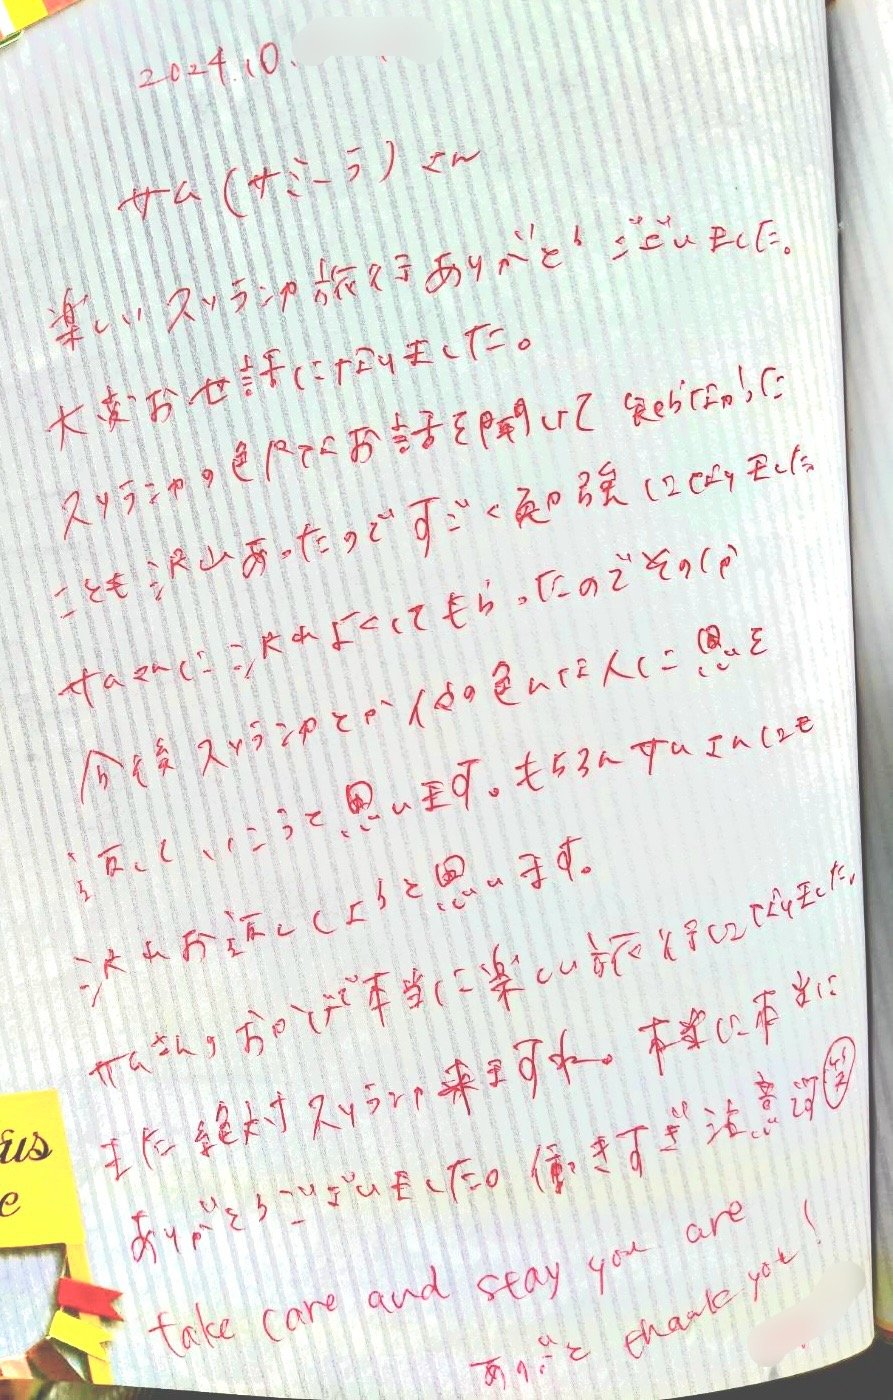 2024.10.
サム(サミーラ)さん
楽しいスリランカ旅行ありがとうございました。
大変お世話になりました。
スリランカの色々なお話を聞いて知らなかった
ことも沢山あったのですごく勉強になりました
サムさんに沢山よくしてもらったのでその
今後スリランカとか他の色んな人に恩を
返していこうと思います。もちろんサムさんにも
沢山お返ししようと思います。
サムさんのおかげで本当に楽しい旅行になりました。
また絶対スリランカ来ますね。本当に本当に
ありがとうございました。働きすぎ注意
take care and stay you are
ありがと thank you!
us
e